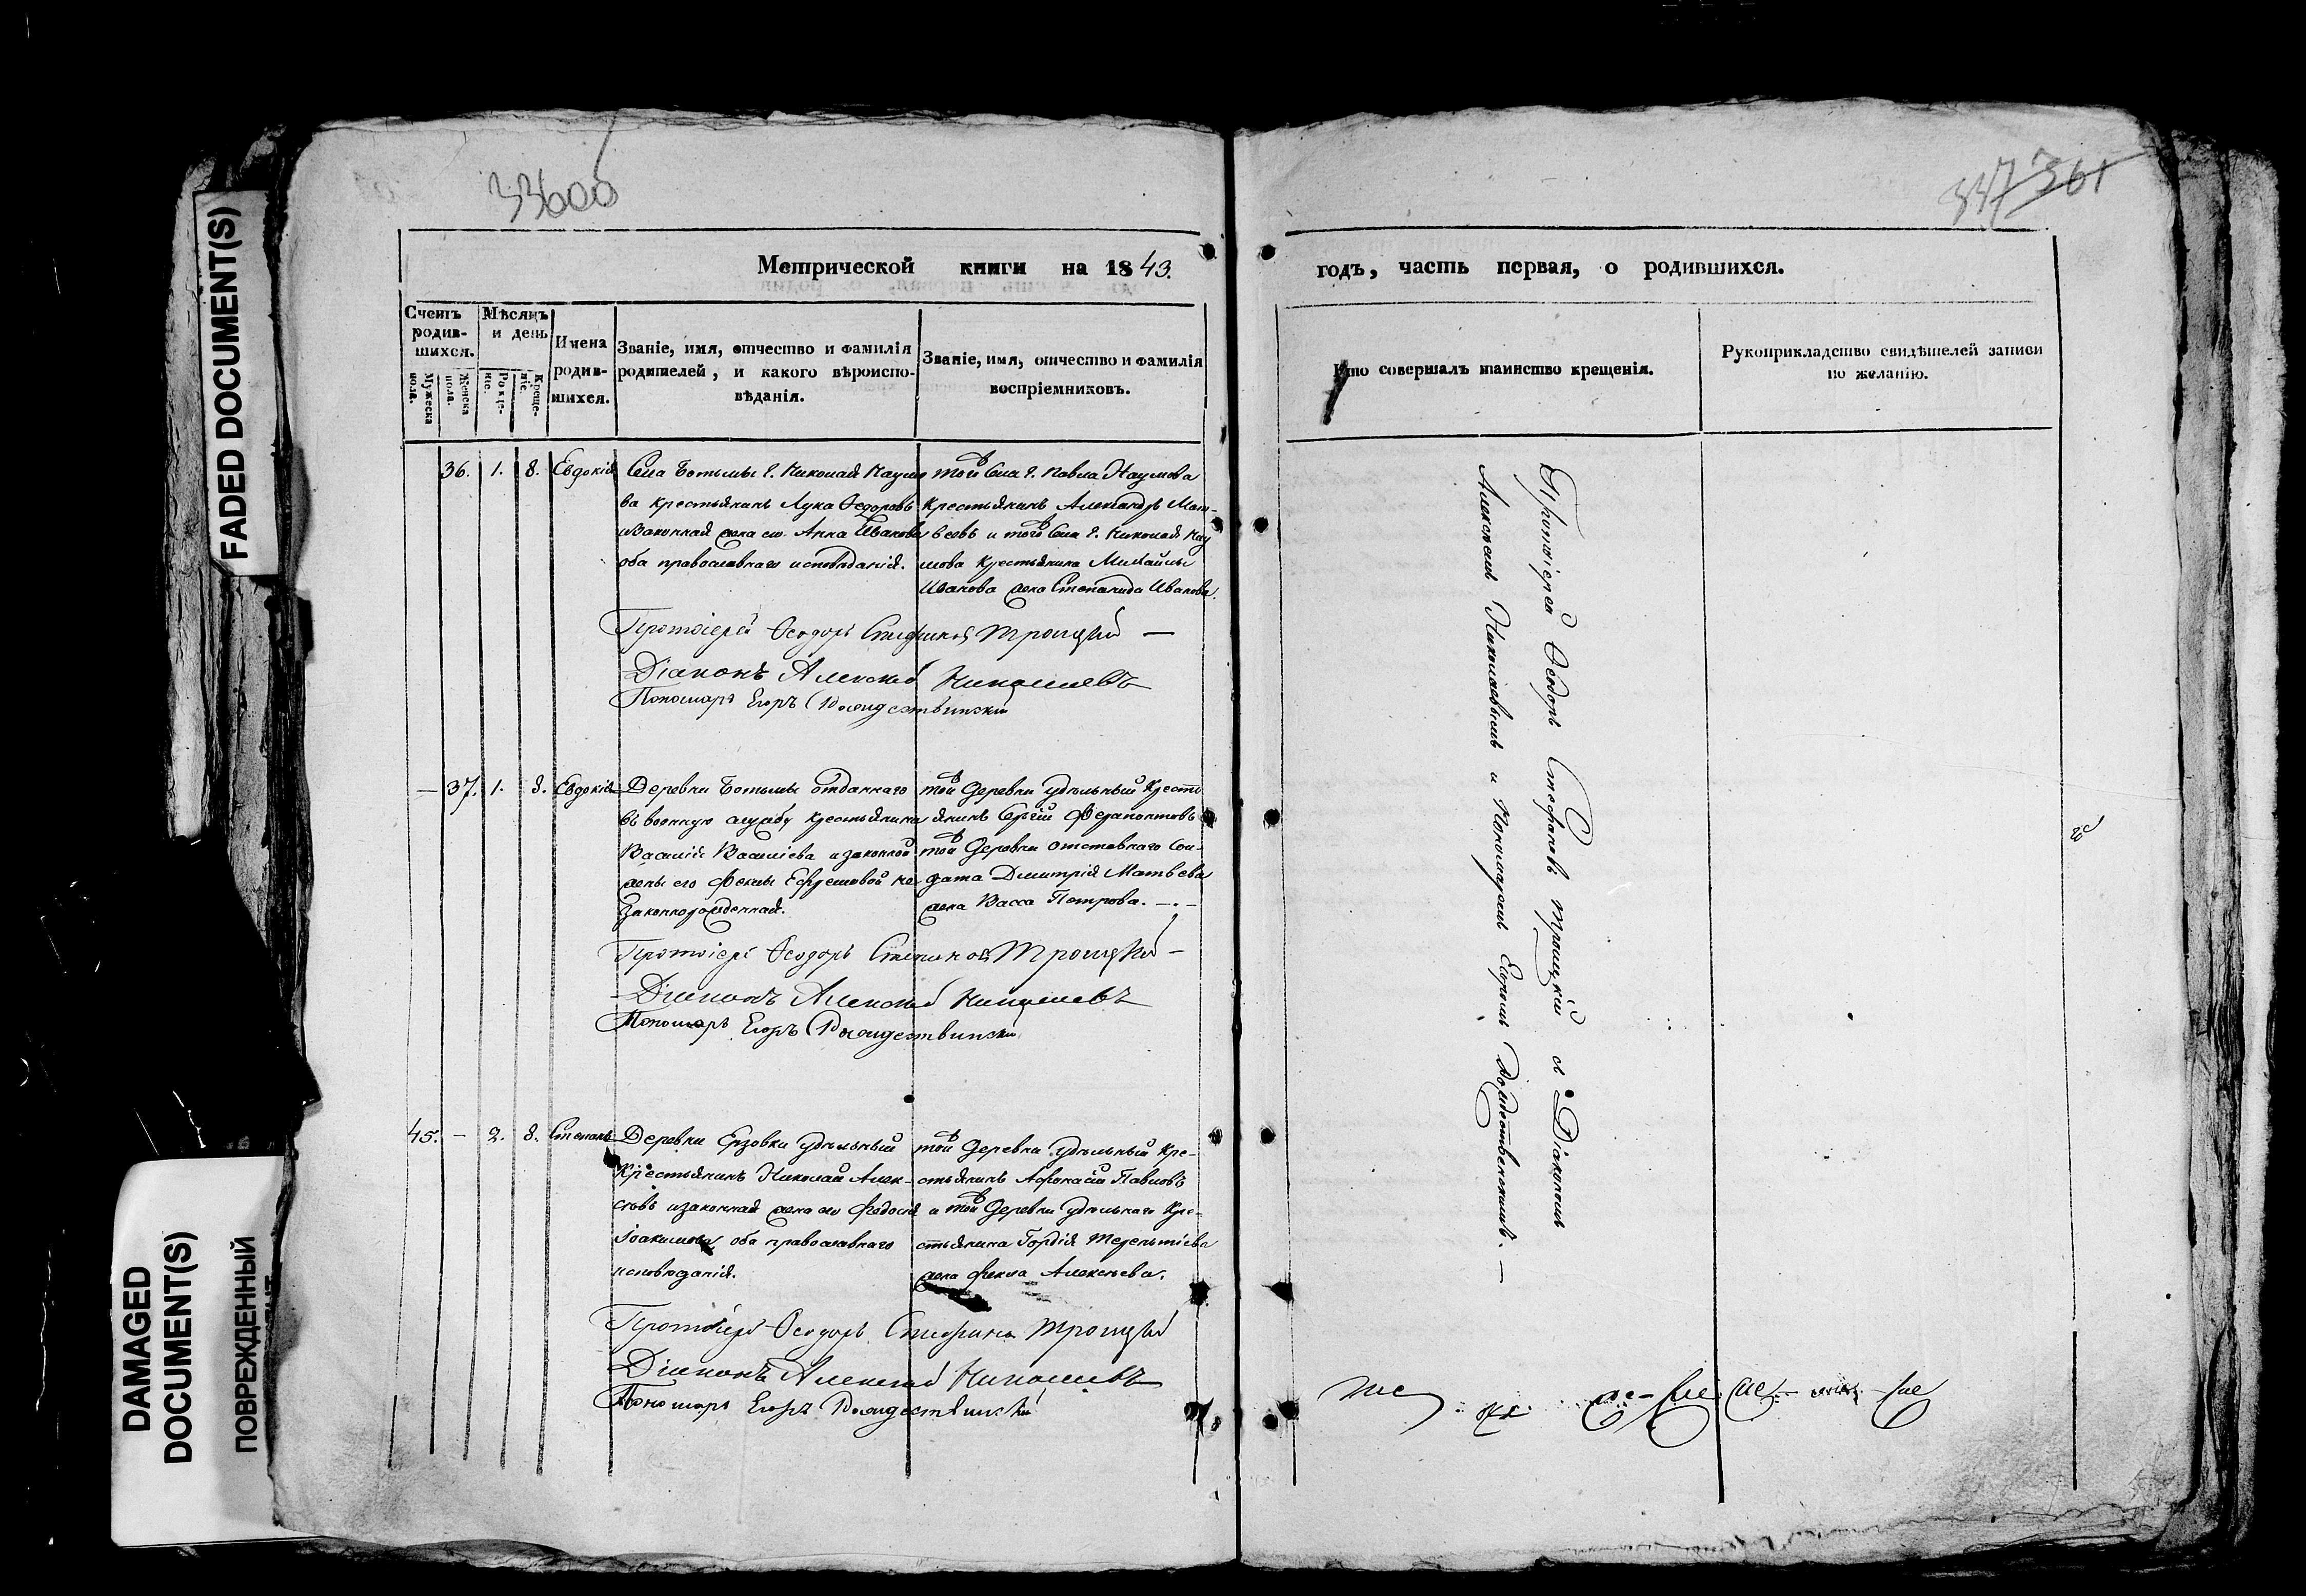 FADED DOCUMENT(S)
DAMAGED
DOCUMENT(S)
ПОВРЕЖДЕННЫЙ
33600
347 361
Метрической книги на 1843.
годъ, часть первая, о родившихся.
Счетъ родив-шихся.
Мужеска пола.
Женска пола.
Мѣсяцъ и день
Рожде-ніе.
Креще-ніе.
Имена родив-шихся.
Званіе, имя, отчество и фамилія
родителей, и какого вѣроиспо-
вѣданія.
Званіе, имя, отчество и фамилія
воспріемниковъ.
Кто совершалъ таинство крещенія.
Рукоприкладство свидѣтелей записи
по желанію.
36. 1. 8. Евдокія
Села Ботьмы г. Николая Наумо
ва крестьянинъ Лука Ѳедоровъ
и законная жена его Анна Иванова
оба православнаго исповѣданія.
той Села г. Павла Наумова
крестьянинъ Александръ Мат-
вѣевъ и того Села г. Николая Нау
мова крестьянина Михайлы
Иванова жена Степанида Иванова.
Протоіерей Ѳеодоръ Стефановъ Троицкій
Діаконъ Алексѣй Николаевъ
Пономарь Егоръ Рождественскій
— 37. 1. 8. Евдокія
Деревни Ботьмы отданнаго
въ военную службу крестьянина
Василія Василіева и законной
жены его Феклы Ефремовой не
законнорожденная.
той Деревни удѣльный кресть
янинъ Сергій Ферапонтовъ
той Деревни отставнаго Сол-
дата Димитрія Матвѣева
жена Васса Петрова. —
Протоіерей Ѳеодоръ Стефановъ Троицкій
Діаконъ Алексѣй Николаевъ
Пономарь Егоръ Рождественскій
45. — 2. 8. Степанъ
Деревни Ерзовки удѣльный
крестьянинъ Николай Алек-
сѣевъ и законная жена его Федосія
Іоакимова оба православнаго
исповѣданія.
той Деревни удѣльный кре-
стьянинъ Афонасій Павловъ
и той Деревни удѣльнаго кре-
стьянина Гордія Терентіева
жена Фекла Алексѣева.
Протоіерей Ѳеодоръ Стефановъ Троицкій
Діаконъ Алексѣй Николаевъ
Пономарь Егоръ Рождественскій
Протоіерей Ѳеодоръ Стефановъ Троицкій съ Діакономъ
Алексѣемъ Николаевымъ и Пономаремъ Егоромъ Рождественскимъ. —